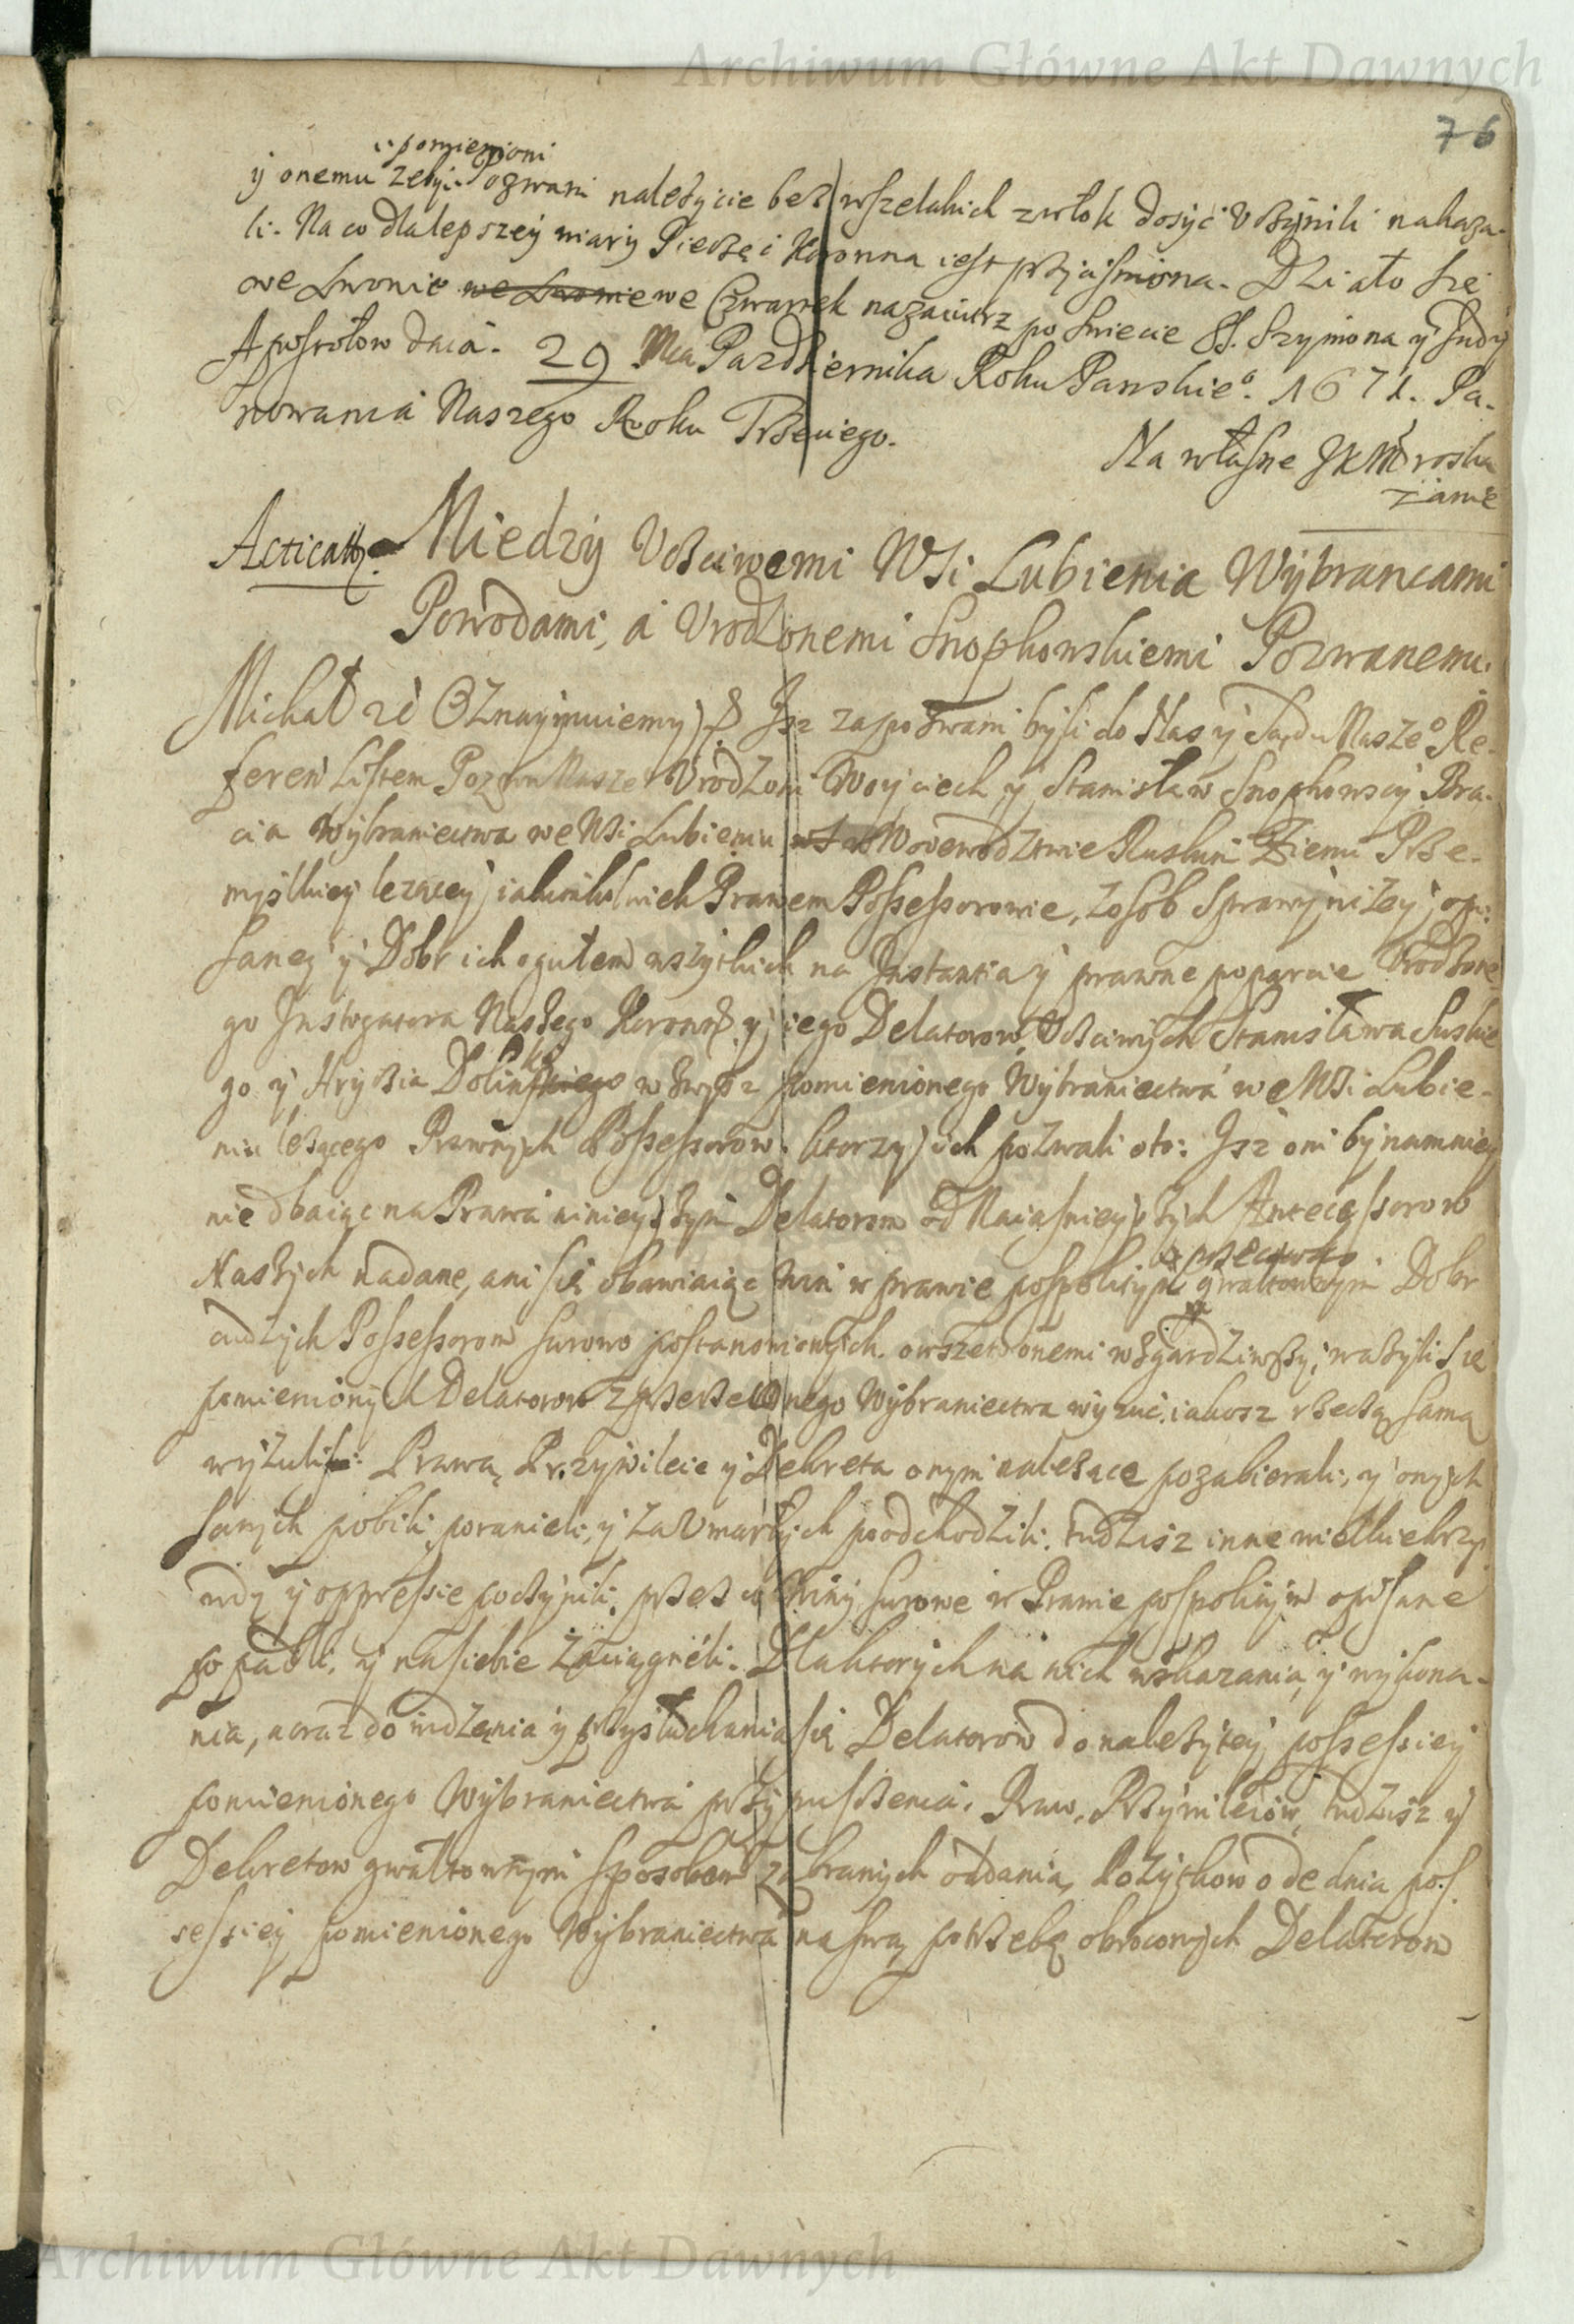 Archiwum Główne Akt Dawnych
76
pomienieni
ÿ onemu zebÿ Pozwani należycie bez wszelakich zwłok dosÿć Vczÿnili nakaza-
li. Na co dla lepszeÿ wiarÿ Pieczęć Koronna iest przÿcisniona. Działo się
we Lwowie we Lwowie we Czwartek nazaiutrz po Swiecie SS. Szymona ÿ Judÿ
Apostołow dnia. 29 Mca Pazdziernika Roku Panskieº. 1671. Pa-
nowania Naszego Roku Trzeciego.
Na własne JKM roska
zanie
Acticatum
Miedzÿ Vczciwemi Wsi Lubienia Wÿbrancami
Powodami, a Vrodzonemi Snopkowskiemi Pozwanemi.
Michał etc Oznaymuiemÿ Jsz zapozwani bÿli do Nas ÿ Sądu Naszeº Re-
feren Listem Pozwu Naszeº Vrodzoni Woyciech ÿ Stanisław Snopkowscÿ Bra-
cia Wÿbraniectwa we Wsi Lubieniu w Woiewodztwie Ruskim Ziemi Prze-
mÿslkieÿ lezaceÿ iakimkolwiek Prawem Possessorowie, z osób Sprawÿ niżeÿ opi-
saneÿ ÿ Dobr ich ogułem wszÿtkich na Jnstantia ÿ prawne poparcie Vrodzone
go Jnstigatora Naszego Koronº ÿ iego Delatorow Vczciwÿch Stanisława Suskie
go ÿ Hrÿcia Dolinskiego wzwÿsz pomienionego Wÿbraniectwa we Wsi Lubie-
niu leżącego Prawnÿch Possessorow. ktorzÿ ich pozwali oto: Jsz oni bÿnamnieÿ
nie dbaiąc na Prawa ninieÿszÿm Delatorom od Naiasnieÿszÿch Antecessorow
przeciwko
Naszÿch nadane, ani się obawiaiąc Win w prawie pospolitÿm gwałtownÿm Dobr
cudzÿch Possessorom surowo postanowionÿch. owszem onemi wzgardziwszÿ, ważÿli się
pomienionÿch Delatorow z przerzeczonego Wÿbraniectwa wÿzuć. iakosz rzeczą samą
wÿzuli. Prawa, Przÿwileie ÿ Dekreta onÿm należace pozabierali, ÿ onÿch
samÿch pobili, poranieli, ÿ za Vmarłÿch poodchodzili. tudziesz inne wielkie krzÿ
wdÿ ÿ oppressie poczÿnili, przez co Winÿ surowe w Prawie pospolitÿm opisane
popadli, ÿ na siebie zaciągnęli. Dla ktorÿch na nich wskazania, ÿ wÿkona-
nia, a oraz do widzenia ÿ przÿsłuchania się Delatorow do należÿteÿ possessieÿ
pomienionego Wÿbraniectwa przÿpuszczenia. Praw, Przÿwileiów, tudziesz ÿ
Dekretow gwałtownÿm sposobem zabranÿch oddania, Pożÿtkow ode dnia pos
sessieÿ pomienionego Wÿbraniectwa na swą potrzebę obroconÿch Delatorom
Archiwum Główne Akt Dawnych